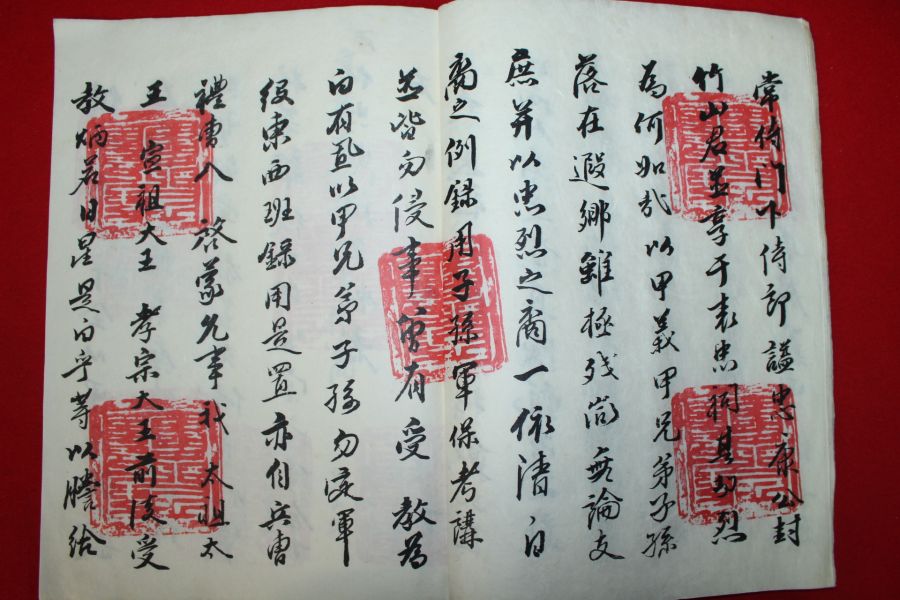 常侍門下侍郎謚忠康公封
竹山君並享于表忠祠其功烈
為何如哉以甲義甲兄弟子孫
落在遐鄉雖極殘尚無論支
庶并以忠烈之裔一依淸白
裔之例錄用子孫軍保考講
並皆勿侵事曾有受 教為
白有置以甲兄弟子孫勿定軍
役東西班錄用是置亦自兵曺
禮曺入 啓蒙允事我 太祖太
王 宣祖大王 孝宗大王前後受
敎炳若日星是白乎等以謄給